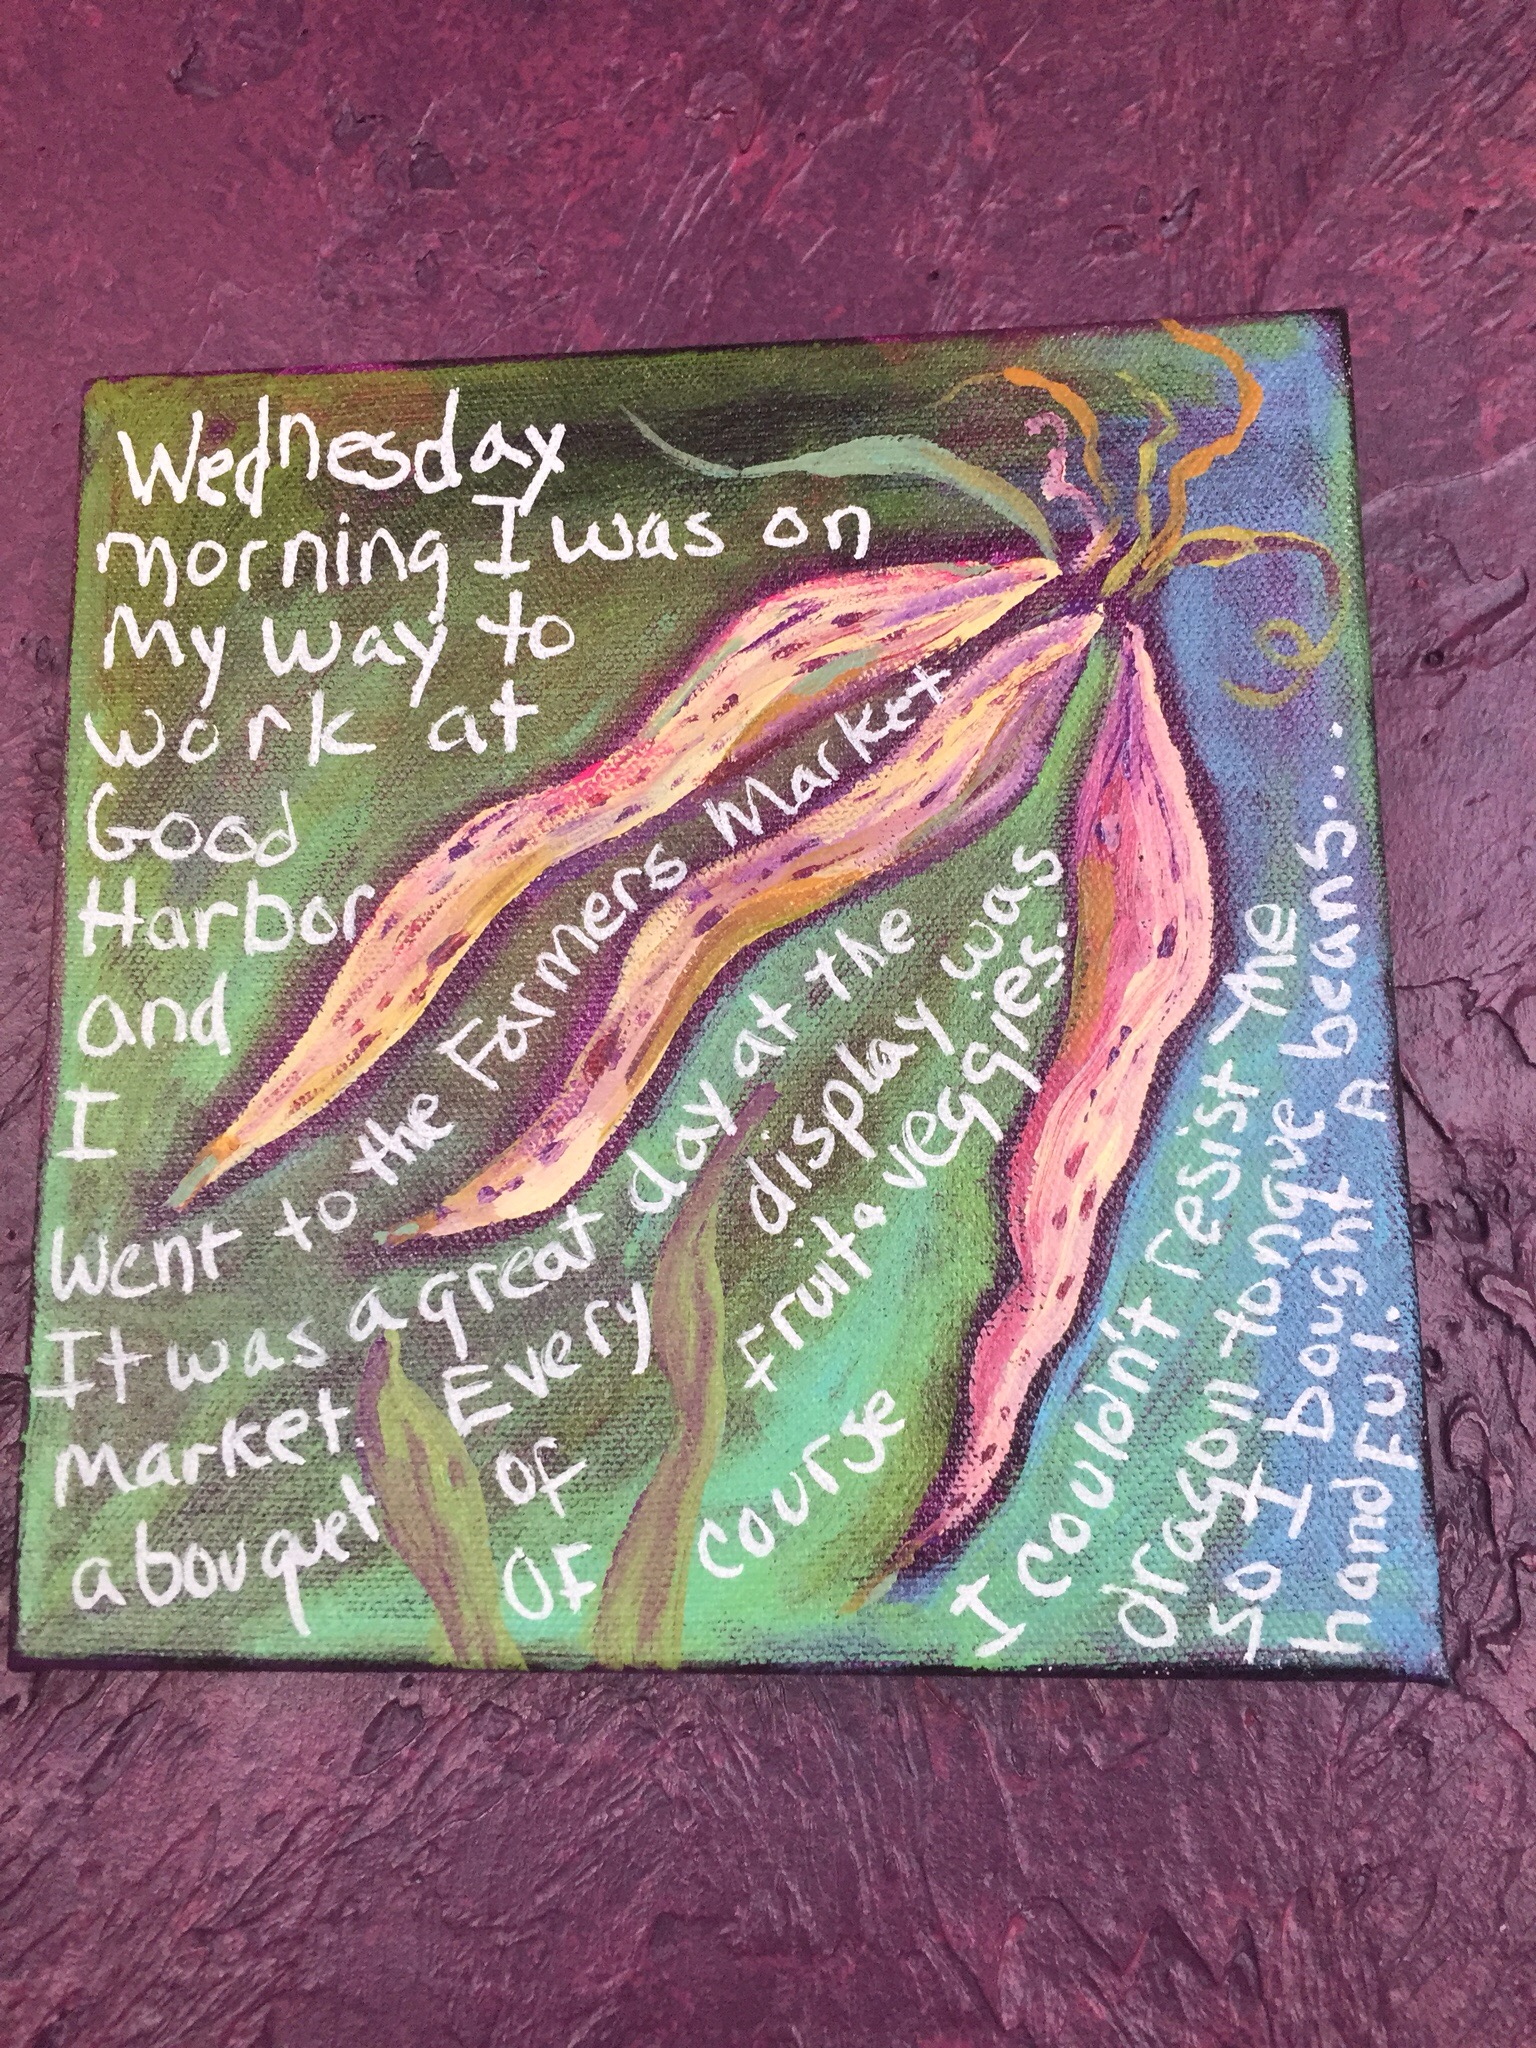 Wednesday
morning I was on
my way to
work at
Good
Harbor
and
I
went to the Farmers Market
It was a great day at the
market. Every display was
a bouquet of fruit & veggies.
OF course
I couldn't resist the
Dragon-tongue beans...
so I bought A
handful.